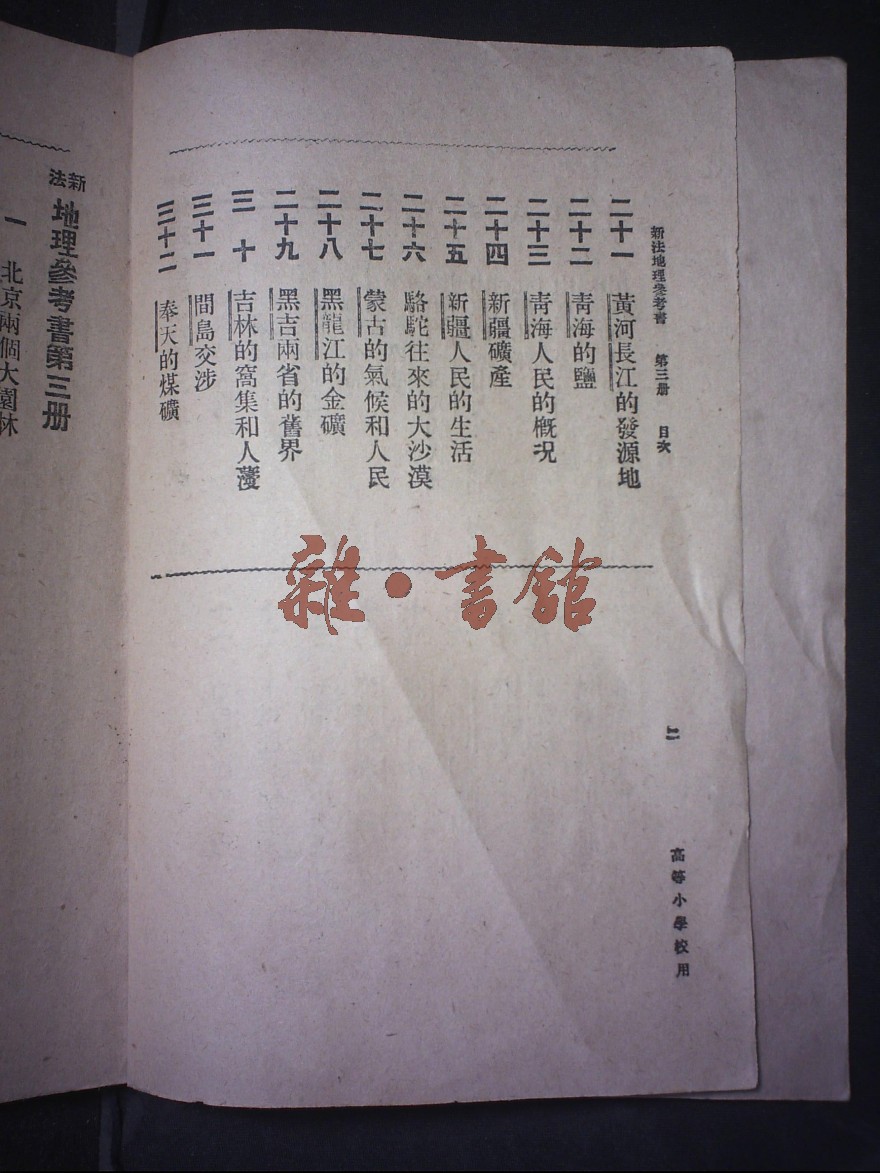 新法地理參考書 第三册 目次
二十一 黃河長江的發源地
二十二 青海的鹽
二十三 青海人民的概况
二十四 新疆礦產
二十五 新疆人民的生活
二十六 駱駝往來的大沙漠
二十七 蒙古的氣候和人民
二十八 黑龍江的金礦
二十九 黑吉兩省的舊界
三十 吉林的窩集和人薓
三十一 間島交涉
三十二 奉天的煤礦
二
高等小學校用
新法地理參考書第三册
一 北京兩個大園林
雜·書館